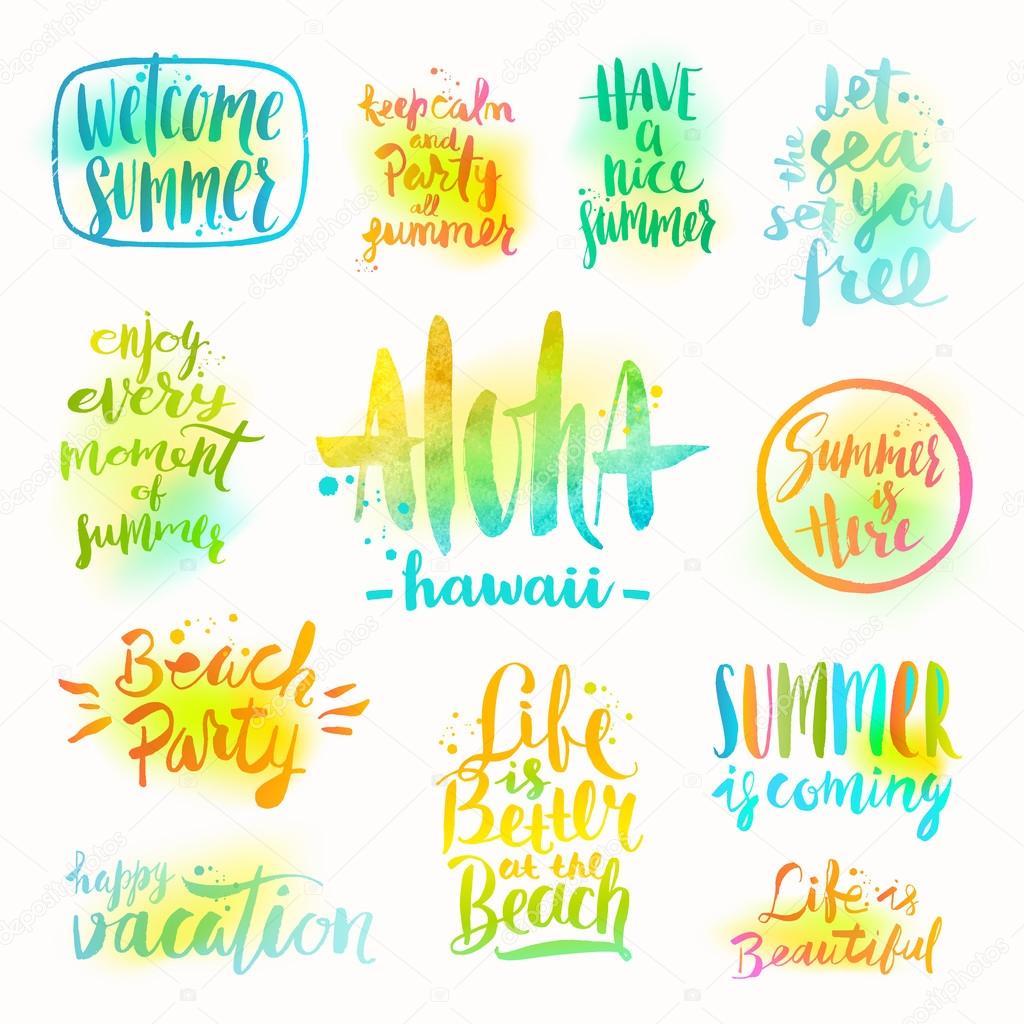 welcome
summer
keep calm
and
Party
all
summer
HAVE
a
nice
summer
Let
the sea
set you
free
enjoy
every
moment
of
summer
AlohA
- hawaii -
Summer
is
Here
Beach
Party
Life
is
Better
at the
Beach
SUMMER
is coming
happy
vacation
Life is
Beautiful
depositphotos